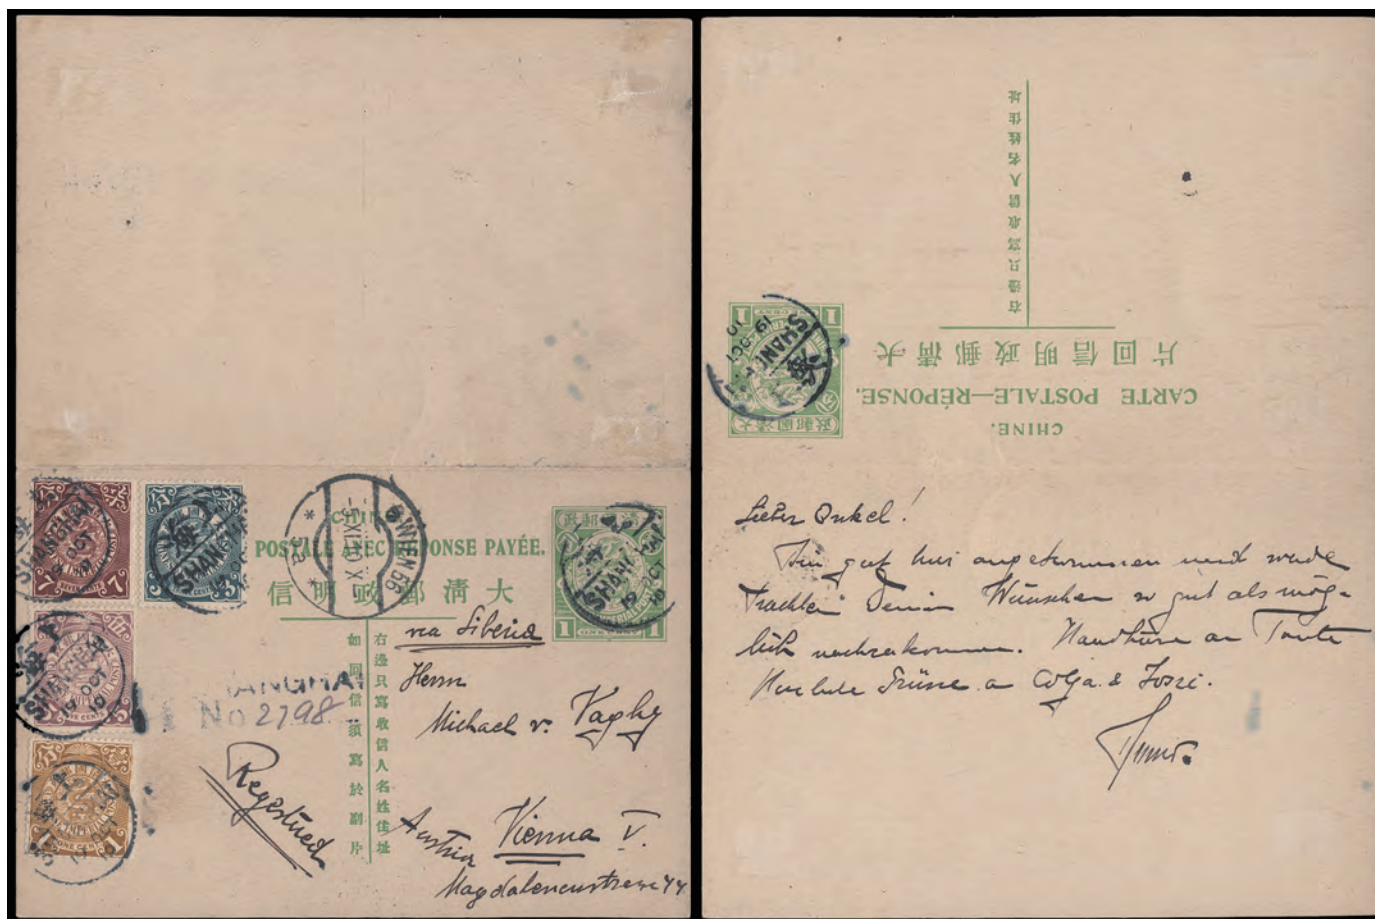 SHANGHAI
19 OCT 10
7
SHANGHAI
19 OCT
CENTS
SHANGHAI
19 OCT 10
FIVE CENTS
1
ONE CENT
1
WIEN 55
CHINE
POSTALE AVEC RÉPONSE PAYÉE.
大清郵政明信
1
ONE CENT
右邊只寫收信人名姓住址
如回信須寫於副片
ANGHAI
No 2798
Registered
via Siberia
Herrn
Michael v. Vaghy
Austria Vienna V.
Magdalenenstrasse 44
CHINE.
CARTE POSTALE—RÉPONSE.
大清郵政明信回片
右邊只寫收信人名姓住址
大清國郵政
1
1
19 OCT 10
Lieber Onkel!
Bin gut hier angekommen und werde
trachten Deinen Wünschen so gut als mög-
lich nachzukommen. Handküsse an Tante
Herzliche Grüsse an